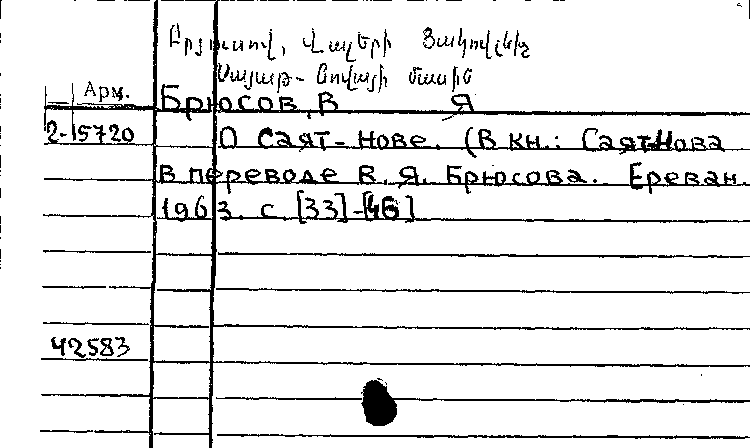 Բրյուսով, Վալերի Յակովլևիչ
Սայաթ-Նովայի մասին
Арм. Брюсов, В Я
2-15720 О Саят-Нове. (В кн.: Саят-Нова
в переводе В. Я. Брюсова. Ереван.
1963. с. [33]-[46]
42583